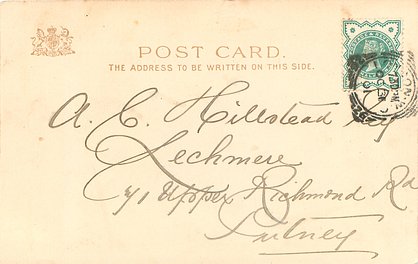 POST CARD.
THE ADDRESS TO BE WRITTEN ON THIS SIDE.
A. C. Hillstead Esq
Lechmere
Upper Richmond Rd
Putney